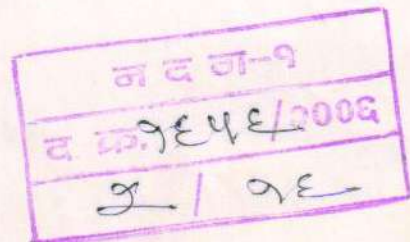 न द -१
द क्र. १६५६/२००६
२ / १६